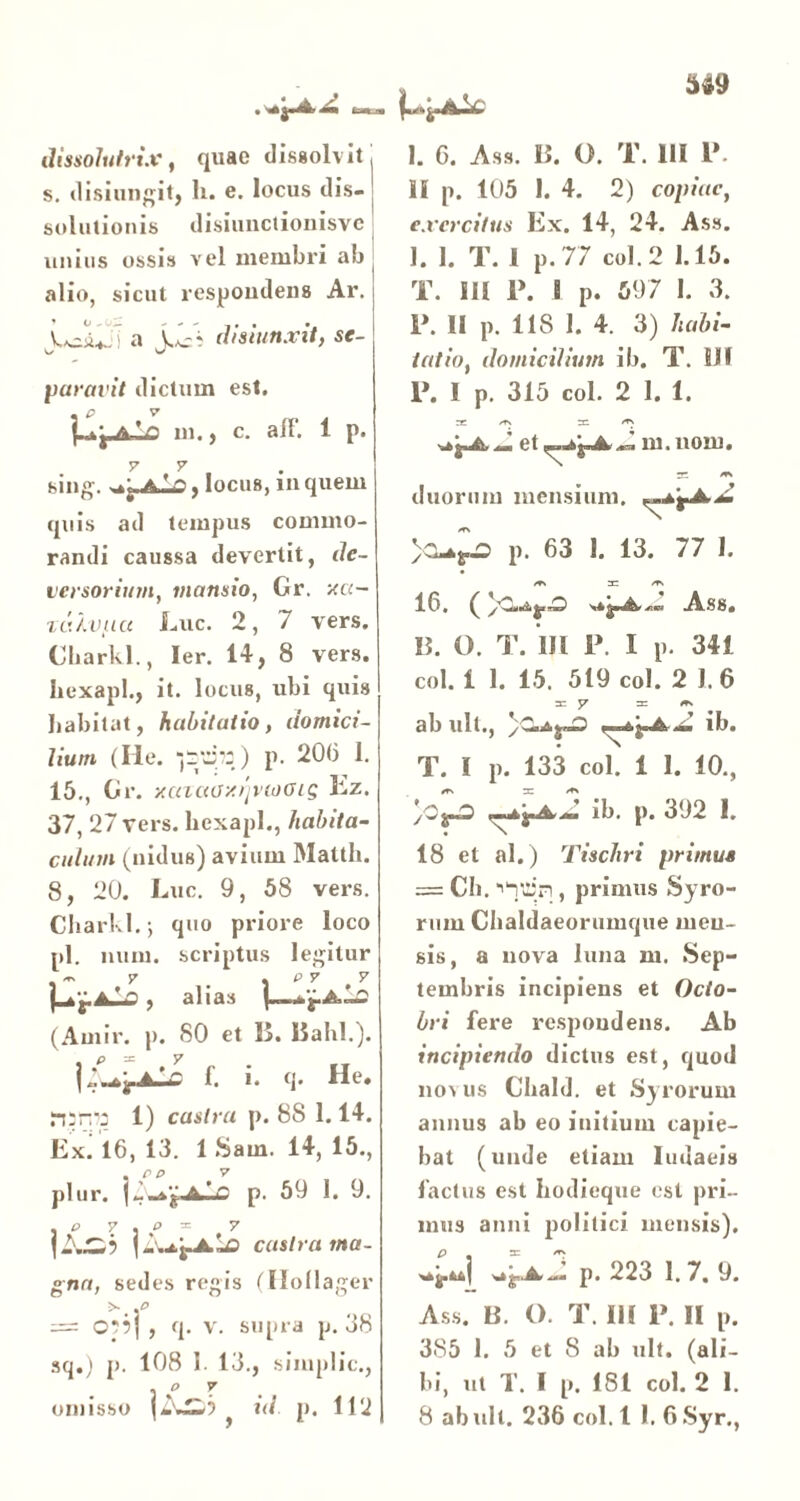 549
ܡܫܪܝܐ — ܬܫܪܝ.
dissolutrix, quae dissolvit
s. disiungit, h. e. locus dis-
solutionis disiunctionisve
unius ossis vel membri ab
alio, sicut respondens Ar.
a disiunxit, se-
paravit dictum est.
ܡܫܪܝܐ m., c. aff. 1 p.
sing. ܡܫܪܝ, locus, in quem
quis ad tempus commo-
randi caussa devertit, de-
versorium, mansio, Gr. κα-
τάλυμα Luc. 2, 7 vers.
Charkl., Ier. 14, 8 vers.
hexapl., it. locus, ubi quis
habitat, habitatio, domici-
lium (He. מִשְׁכָּן) p. 206 l.
15., Gr. κατασκήνωσις Ez.
37, 27 vers. hexapl., habita-
culum (nidus) avium Matth.
8, 20. Luc. 9, 58 vers.
Charkl.; quo priore loco
pl. num. scriptus legitur
ܡܫܪ̈ܝܐ, alias ܡܫܪܝܐ
(Amir. p. 80 et B. Bahl.).
ܡܫܪܝܬܐ f. i. q. He.
מַחֲנֶה 1) castra p. 88 l. 14.
Ex. 16, 13. 1 Sam. 14, 15.,
plur. ܡܫܪ̈ܝܬܐ p. 59 l. 9.
ܡܫܪܝܬܐ ܪܒܬܐ castra ma-
gna, sedes regis (Hoflager
= ܐܘܪܕܘ, q. v. supra p. 38
sq.) p. 108 l. 13., simplic.,
omisso ܪܒܬܐ, id. p. 112
l. 6. Ass. B. O. T. III P.
II p. 105 l. 4. 2) copiae,
exercitus Ex. 14, 24. Ass.
l. l. T. I p. 77 col. 2 l. 15.
T. III P. I p. 597 l. 3.
P. II p. 118 l. 4. 3) habi-
tatio, domicilium ib. T. III
P. I p. 315 col. 2 l. 1.
ܬܫܪܝ et ܬܫܪܝܢ m. nom.
duorum mensium. ܬܫܪܝܢ
ܩܕܝܡ p. 63 l. 13. 77 l.
16. (ܬܫܪܝ ܩܕܝܡ Ass.
B. O. T. III P. I p. 341
col. 1 l. 15. 519 col. 2 l. 6
ab ult., ܬܫܪܝܢ ܩܕܝܡ ib.
T. I p. 133 col. 1 l. 10.,
ܬܫܪܝܢ ܩܕܡ ib. p. 392 l.
18 et al.) Tischri primus
= Ch. תִּשְׁרִי, primus Syro-
rum Chaldaeorumque men-
sis, a nova luna m. Sep-
tembris incipiens et Octo-
bri fere respondens. Ab
incipiendo dictus est, quod
novus Chald. et Syrorum
annus ab eo initium capie-
bat (unde etiam Iudaeis
factus est hodieque est pri-
mus anni politici mensis).
ܬܫܪܝ ܐܚܪܝ p. 223 l. 7. 9.
Ass. B. O. T. III P. II p.
385 l. 5 et 8 ab ult. (ali-
bi, ut T. I p. 181 col. 2 l.
8 ab ult. 236 col. 1 l. 6 Syr.,